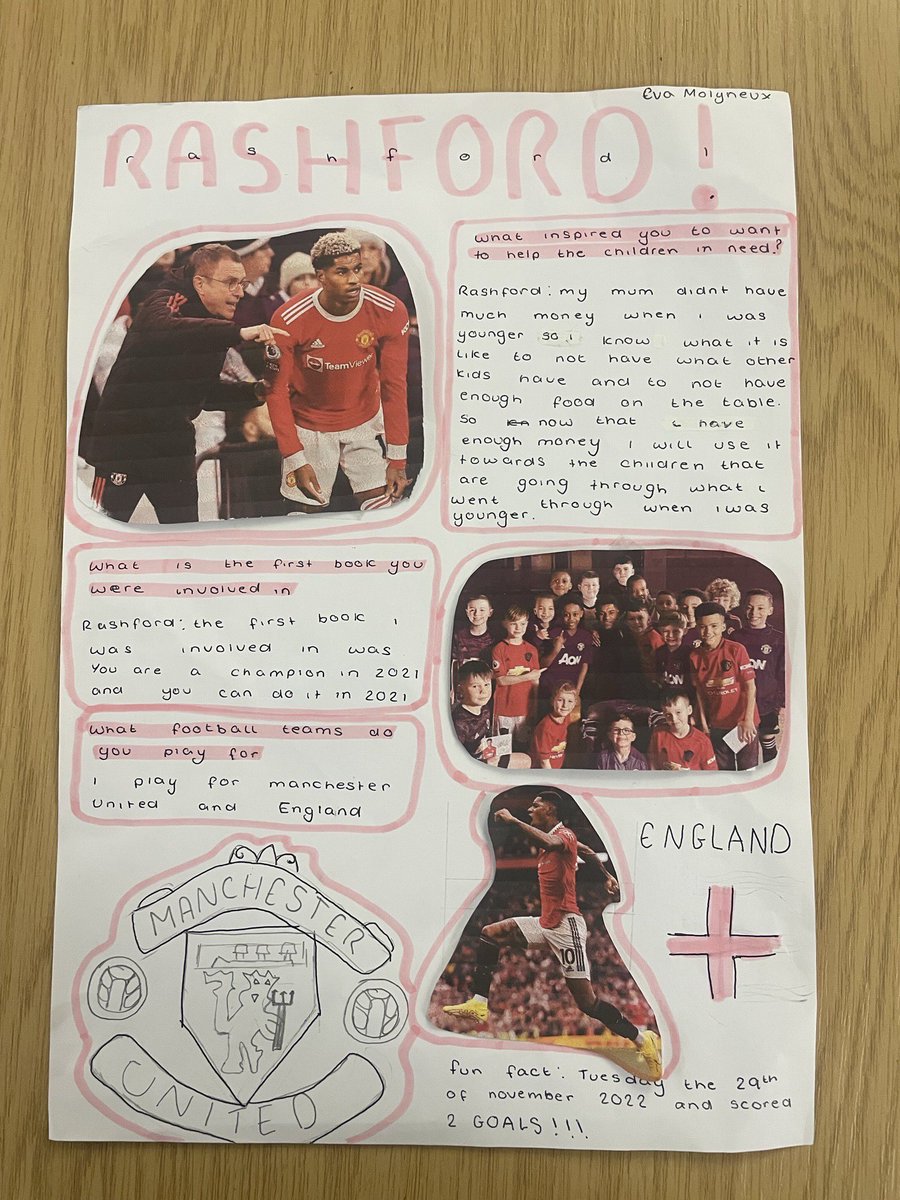 Eva Molyneux
RASHFORD!
rashford!
TeamViewer
What inspired you to want
to help the children in need?
Rashford: my mum didnt have
much money when i was
younger so i know what it is
like to not have what other
kids have and to not have
enough food on the table.
So now that i have
enough money i will use it
towards the children that
are going through what i
went through when i was
younger.
What is the first book you
were involved in
Rashford: the first book i
was involved in was
You are a champion in 2021
and you can do it in 2021
AON
CHEVROLET
AON
What football teams do
you play for
I play for manchester
United and England
MANCHESTER
UNITED
10
ENGLAND
fun fact: Tuesday the 29th
of november 2022 and scored
2 GOALS!!!